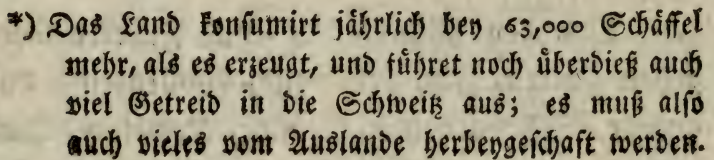 *) Das Land konsumirt jährlich bey 63,000 Schäffel
mehr, als es erzeugt, und führet noch überdieß auch
viel Getreid in die Schweitz aus; es muß also
auch vieles vom Auslande herbeygeschaft werden.